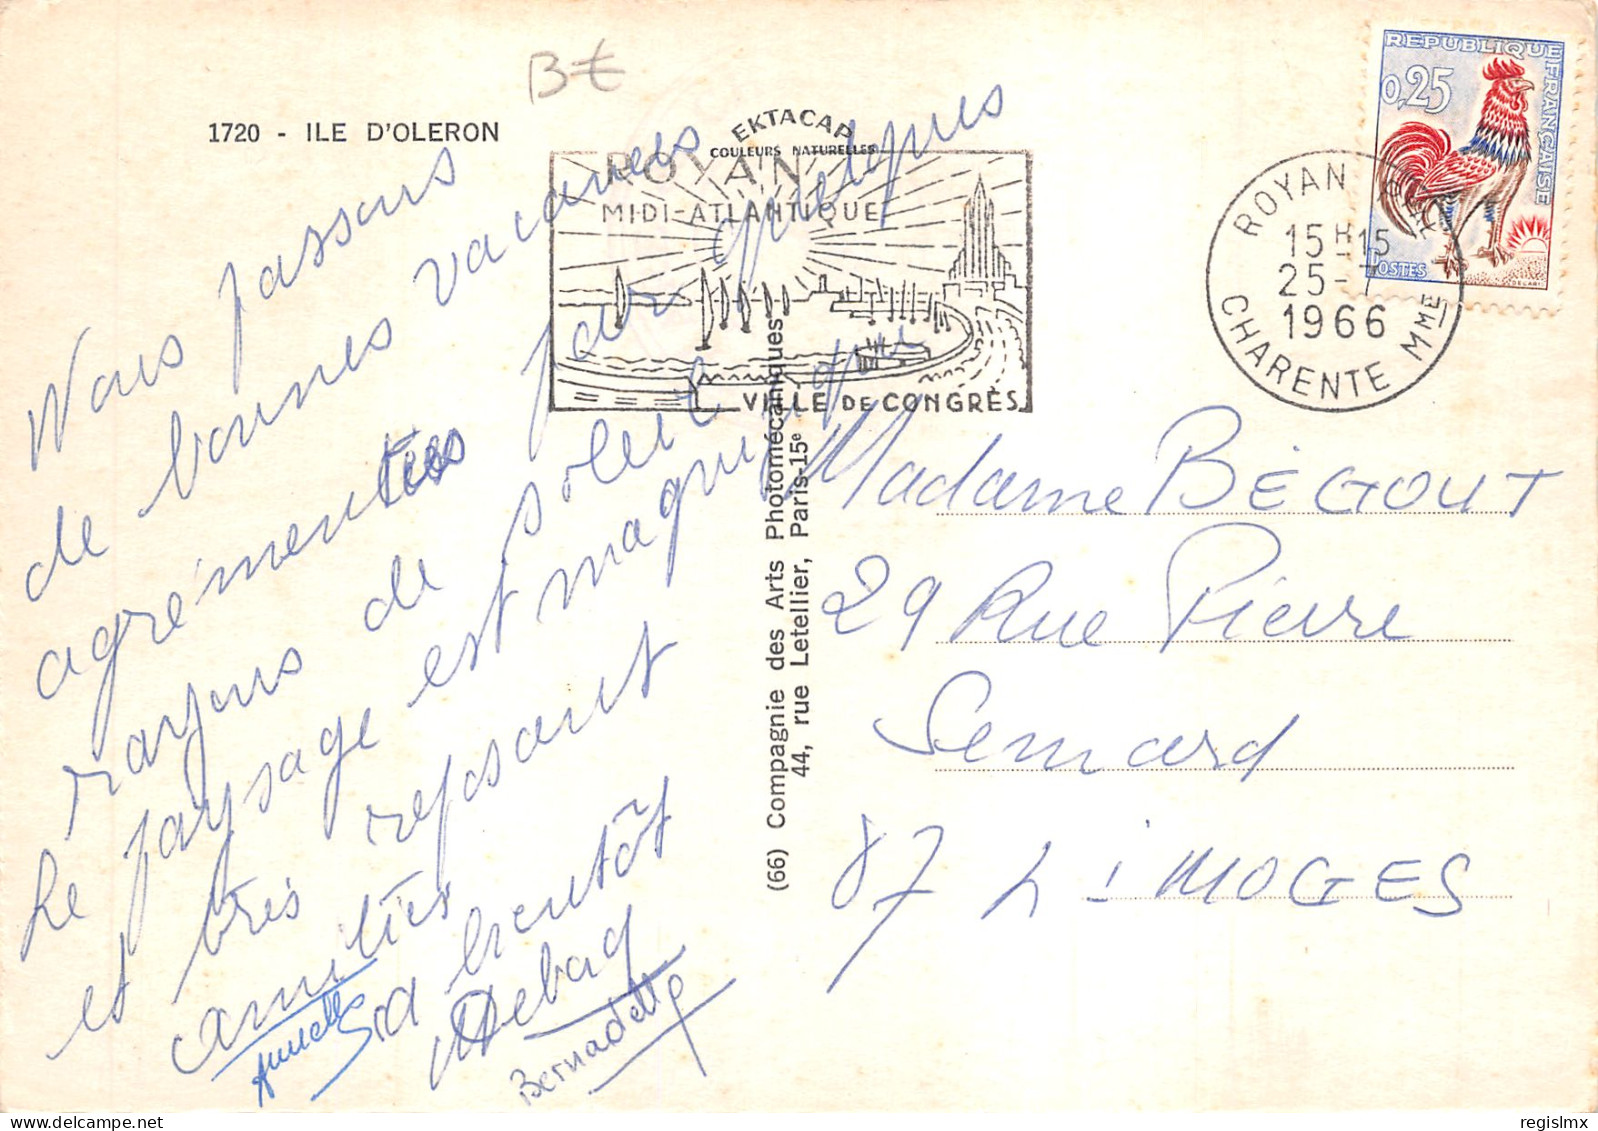 B€
1720 - ILE D'OLERON
EKTACAP
COULEURS NATURELLES
ROYAN
MIDI-ATLANTIQUE
VILLE DE CONGRÈS
ROYAN
15H15
25-7
1966
CHARENTE MME
REPUBLIQUE FRANÇAISE
0,25
POSTES
DECARIS
Nous passons
de bonnes vacances
agrémentées par quelques
rayons de soleil
Le paysage est magnifique
et très reposant
amitiés
a bientôt
Annelle
Debacq
Bernadette
(66) Compagnie des Arts Photomécaniques
44, rue Letellier, Paris-15e
Madame BÉGOUT
29 Rue Pierre
Semard
87 LIMOGES
regislmx